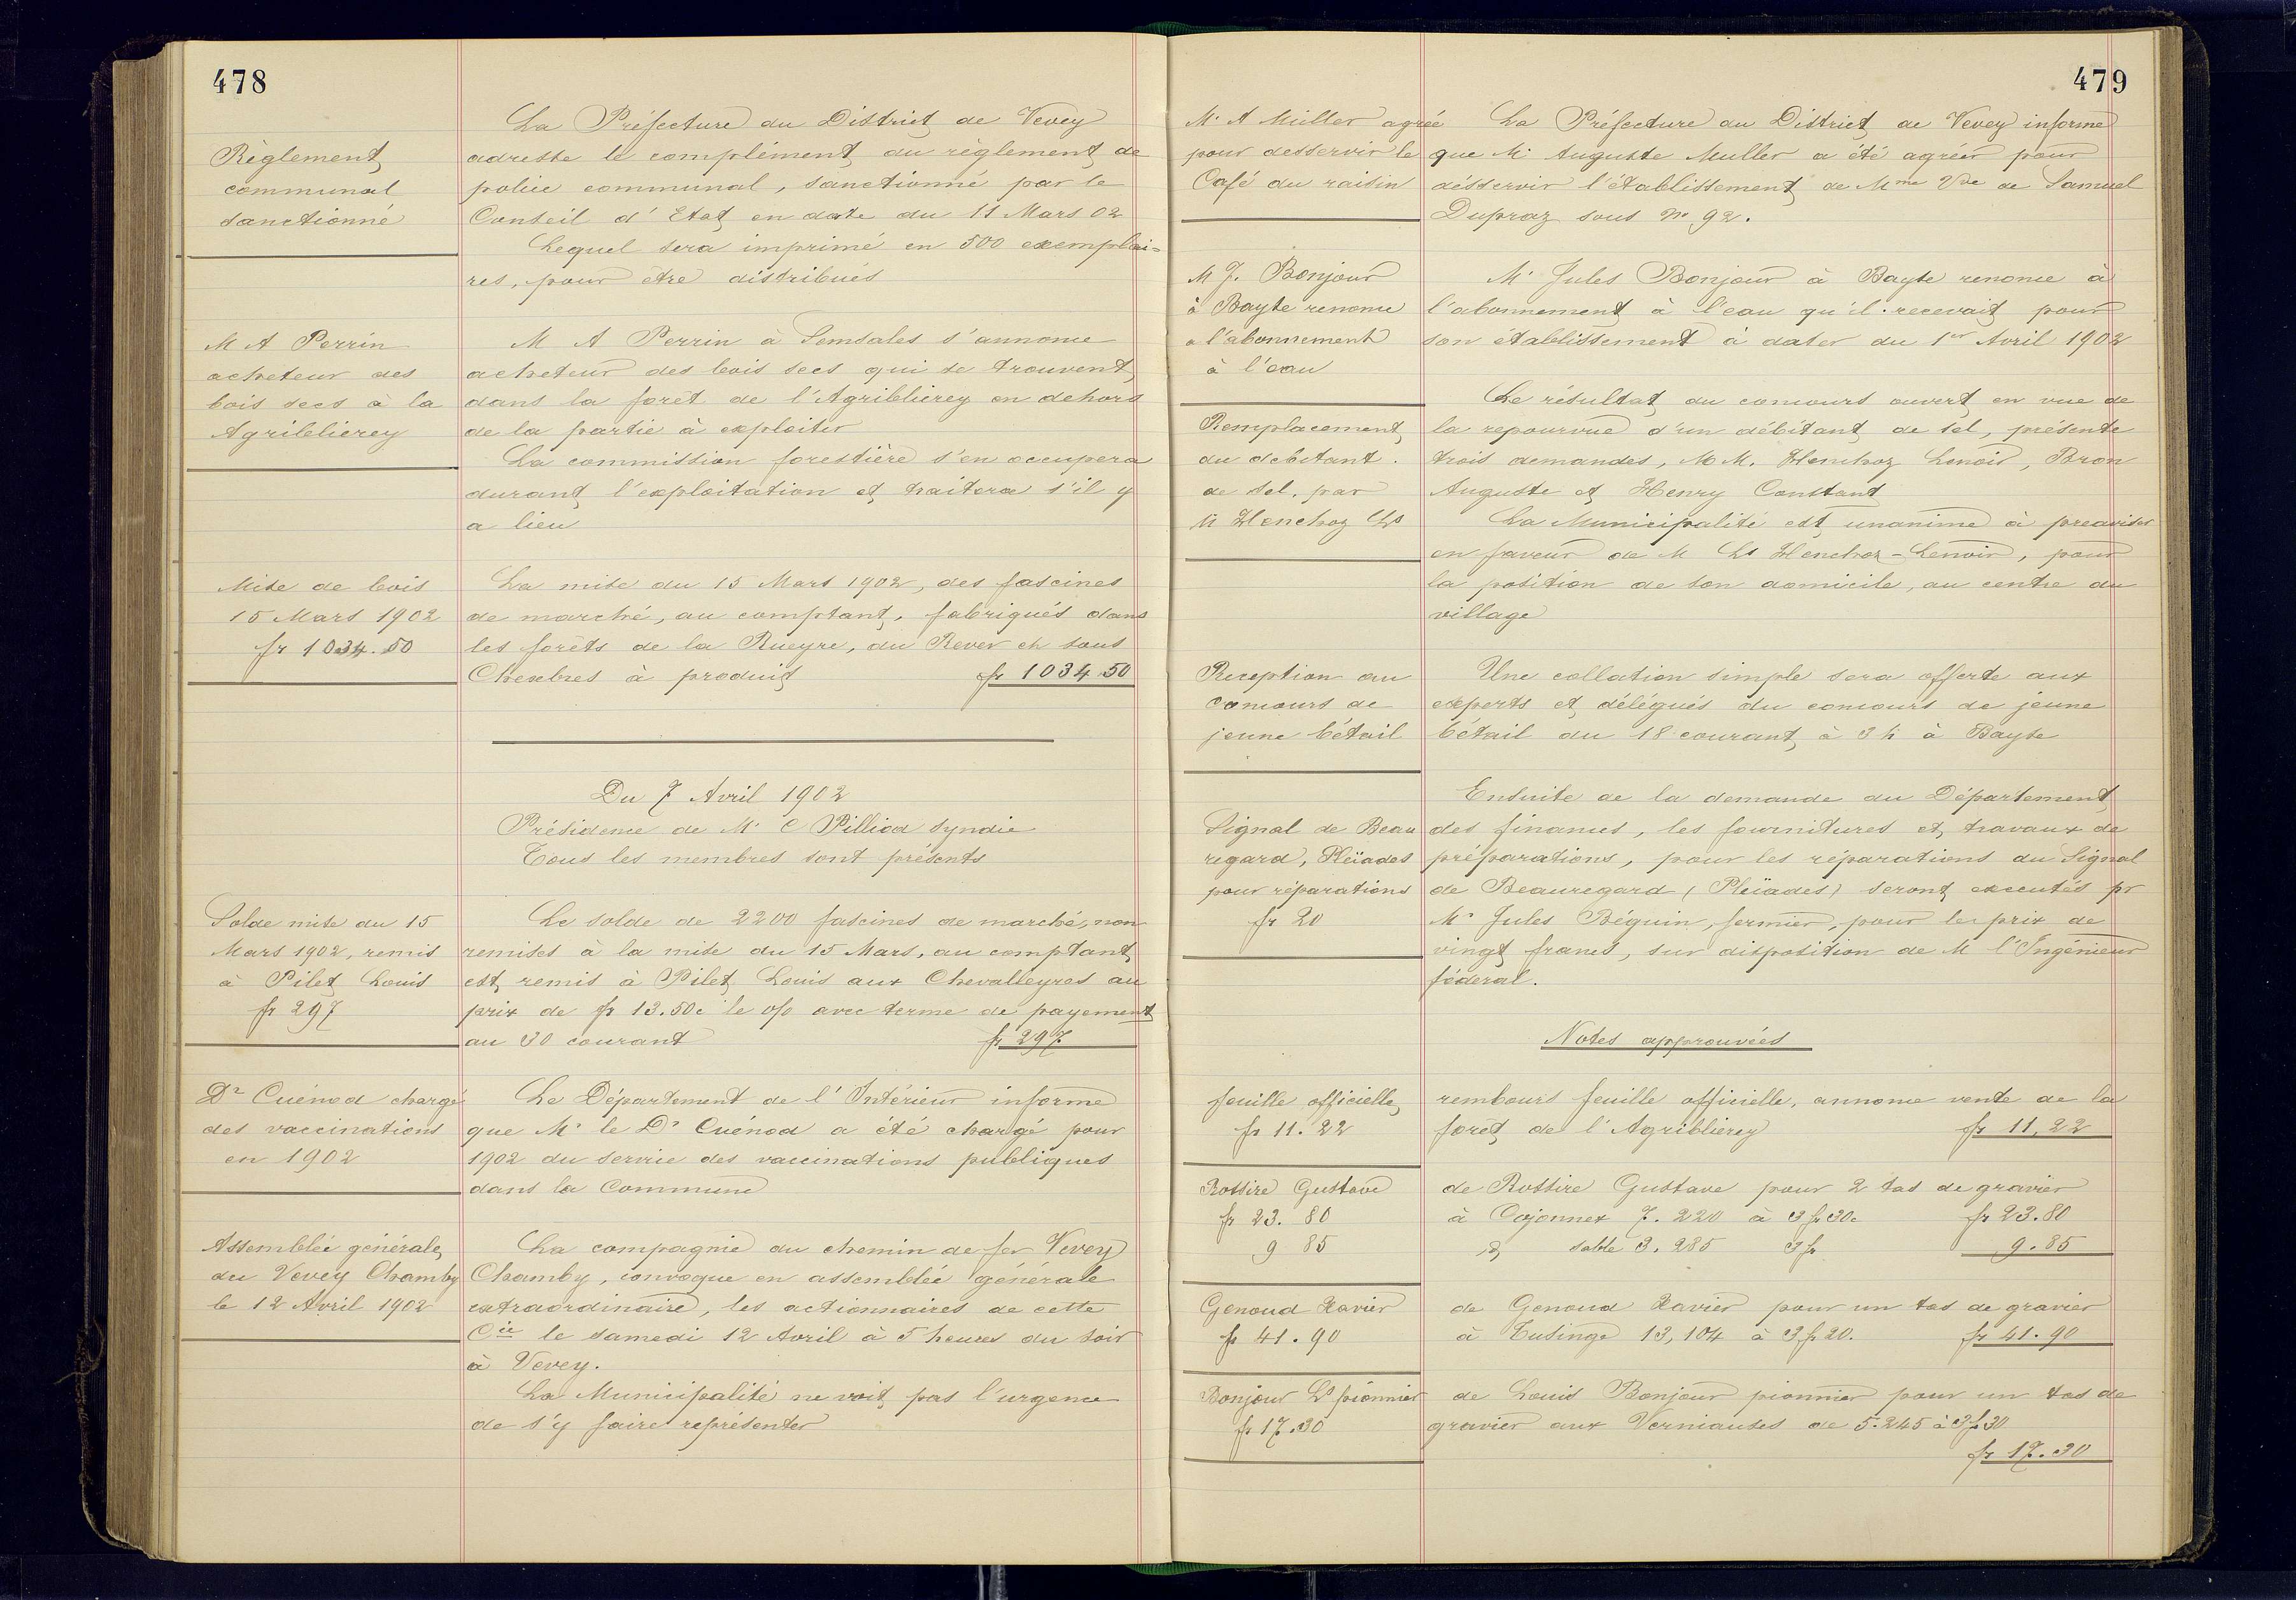 478
La Préfecture du District de Vevey
Règlement
communal
sanctionné
adresse le complément du règlement de
police communal, sanctionné par le
Conseil d'Etat en date du 11 Mars 02
Lequel sera imprimé en 500 exemplai=
res, pour être distribués
M A Perrin
acheteur des
bois secs à la
Agriblierey
M A Perrin à Semsales s'annonce
acheteur des bois secs qui se trouvent
dans la forêt de l'Agriblierey en dehors
de la partie à exploiter
La commission forestière s'en occupera
durant l'exploitation et traitera s'il y
a lieu
Mise de bois
15 Mars 1902
fr 1034.50
La mise du 15 Mars 1902, des fascines
de marché, au comptant, fabriqués dans
les forêts de la Rueyre, du Rever et sous
Chexbres à produit fr 1034.50
Du 7 Avril 1902
Présidence de Mr C Pilliod syndic
Tous les membres sont présents
Solde mise du 15
Mars 1902, remis
à Pilet Louis
fr 297
Le solde de 2200 fascines de marché, non
remises à la mise du 15 Mars, au comptant,
est remis à Pilet Louis aux Chevalleyres au
prix de fr 13.50c le o/o avec terme de payement
au 30 courant fr 297
Dr Cuénod chargé
des vaccinations
en 1902
Le Département de l'Intérieur informe
que Mr le Dr Cuénod a été chargé pour
1902 du service des vaccinations publiques
dans la Commune
Assemblée générale
du Vevey Chamby
le 12 Avril 1902
La compagnie du chemin de fer Vevey
Chamby, convoque en assemblée générale
extraordinaire, les actionnaires de cette
Cie le samedi 12 Avril à 5 heures du soir
à Vevey.
La Municipalité ne voit pas l'urgence
de s'y faire représenter
479
Mr A Müller agréé
pour desservir le
Café du raisin
La Préfecture du District de Vevey informe
que Mr Auguste Muller a été agréer pour
désservir l'établissement de Mme Vve de Samuel
Dupraz sous No 92.
M J. Bonjour
à Bayse renonce
a l'abonnement
à l'eau
Mr Jules Bonjour à Bayse renonce à
l'abonnement à l'eau qu'il recevait pour
son établissement à dater du 1er Avril 1902
Remplacement
du debitant
de sel, par
M Henchoz Ls
Le résultat du concours ouvert en vue de
la repourvue d'un débitant de sel, présente
trois demandes, MM. Henchoz Lenoir, Bron
Auguste et Henry Constant
La Municipalité est unanime à preaviser
en faveur de M Ls Henchoz-Lenoir, pour
la position de son domicile, au centre du
village
Reception au
concours de
jeune bétail
Une collation simple sera offerte aux
experts et délégués du concours de jeune
bétail du 18 courant, à 3 h à Bayse
Signal de Beau
regard, Pléïades
pour réparations
fr 20
Ensuite de la demande du Département
des finances, les fournitures et travaux de
préparations, pour les réparations du Signal
de Beauregard (Pléïades) seront executés pr
Mr Jules Béguin, fermier, pour le prix de
vingt francs, sur disposition de M l'Ingénieur
féderal.
Notes approuvées
feuille officielle
fr 11.22
rembours feuille officielle, annonce vente de la
forêt de l'Agriblierey fr 11,22
Rossire Gustave
fr 23. 80
9 85
de Rossire Gustave pour 2 tas de gravier
à Cojonnex 7. 220 à 3 fr 30c fr 23.80
id sable 3. 285 3 fr 9.85
Genoud Xavier
fr 41.90
de Genoud Xavier pour un tas de gravier
à Tusinge 13,104 à 3 fr 20. fr 41.90
Bonjour Ls pionnier
fr 17.30
de Louis Bonjour pionnier pour un tas de
gravier aux Verniauses de 5.245 à 3 fr 30
fr 17.30